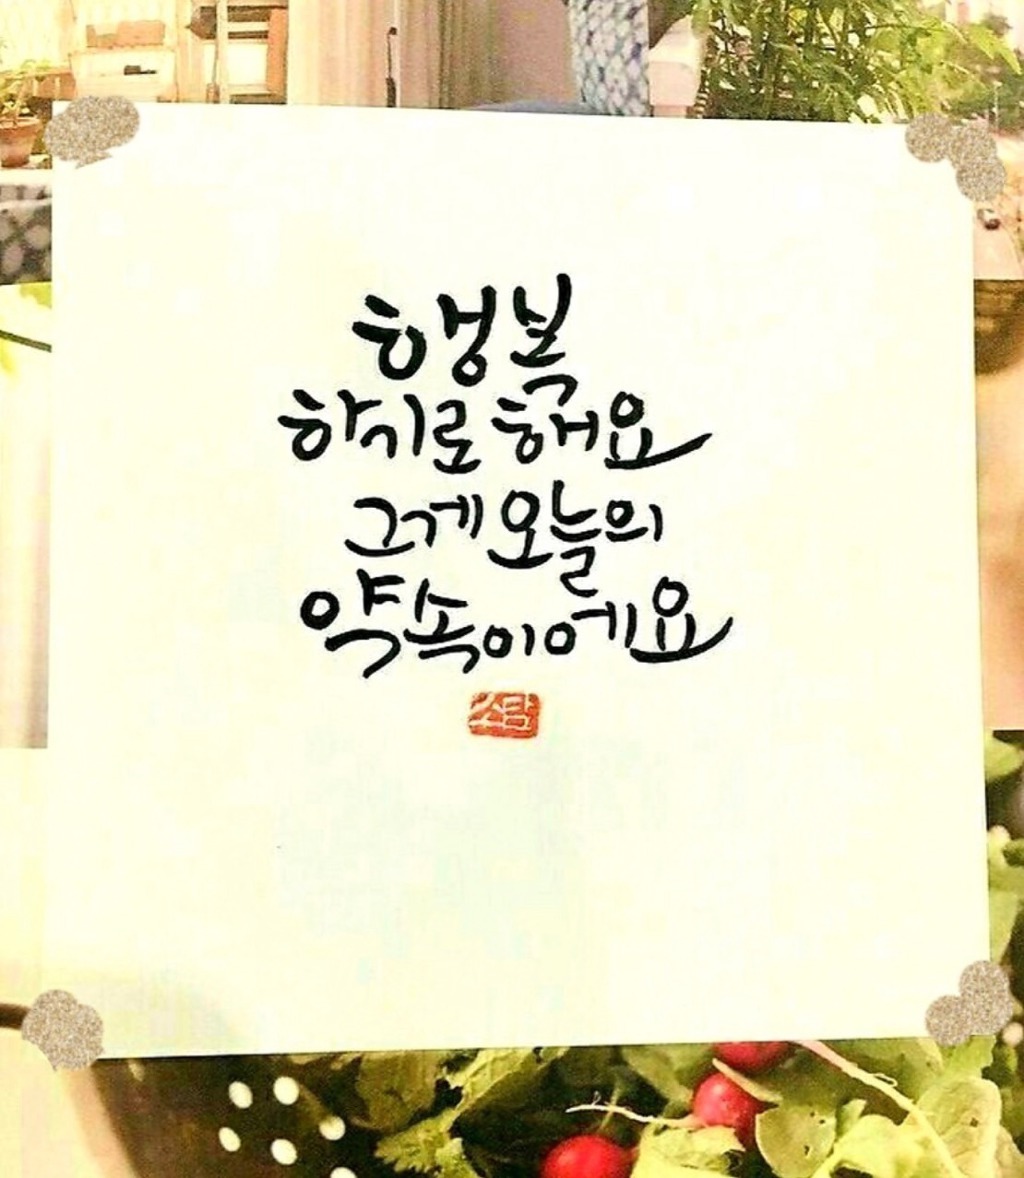 행복
하기로 해요
그게 오늘의
약속이에요